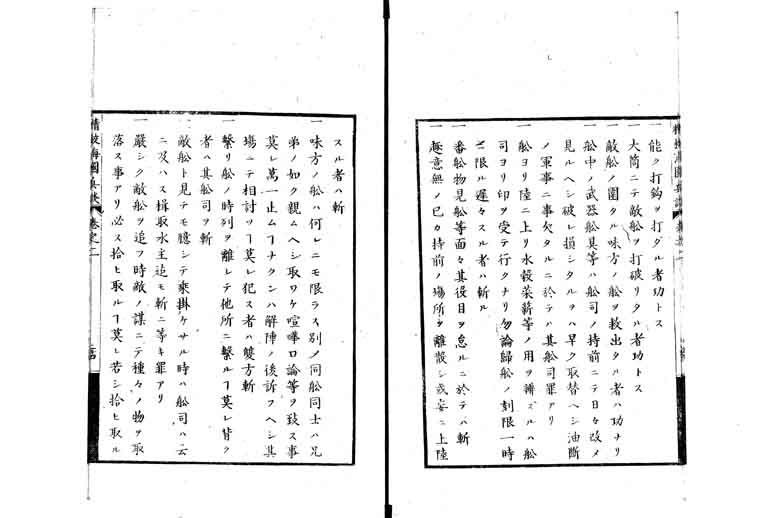 一能ク打鈎ヲ打ダル者功トス
一大筒ニテ敵舩ヲ打破リタル者功トス
一敵舩ノ圍タル味方ノ舩ヲ救出タル者ハ功ナリ
一舩中ノ武器舩具等ハ舩司ノ持前ニテ日々改メ
見ルヘシ破レ損シタルヲハ早ク取替ヘシ油断
ノ軍事ニ事欠タルニ於テハ其舩司罪アリ
一舩ヨリ陸ニ上リ水穀菜薪等ノ用ヲ辨ズルハ舩
司ヨリ印ヲ受テ行クナリ勿論歸舩ノ刻限一時
ヲ限ル遅々スル者ハ斬ル
一番舩物見舩等面々其役目ヲ怠ルニ於テハ斬
一趣意無ノ己カ持前ノ塲所ヲ離散シ或妄ニ上陸
スル者ハ斬
一味方ノ舩ハ何レニモ限ラス別ノ同舩同士ハ兄
弟ノ如ク親ムヘシ取ワケ喧嘩口論等ヲ致ス事
莫レ萬一止ムヿナクンハ解陣ノ後訴フヘシ其
塲ニテ相討ツヿ莫レ犯ス者ハ雙方斬
一繋リ舩ノ時列ヲ離レテ他所ニ繋ルヿ莫レ背ク
者ハ其舩司ヲ斬
一敵舩ト見テモ臆シテ乗掛ケサル時ハ舩司ハ云
ニ及ハス楫取水主迄モ斬ニ等キ罪アリ
一嚴シク敵舩ヲ追フ時敵ノ謀ニテ種々ノ物ヲ取
落ス事アリ必ス拾ヒ取ルヿ莫レ若シ拾ヒ取ル
海國兵談 卷之二